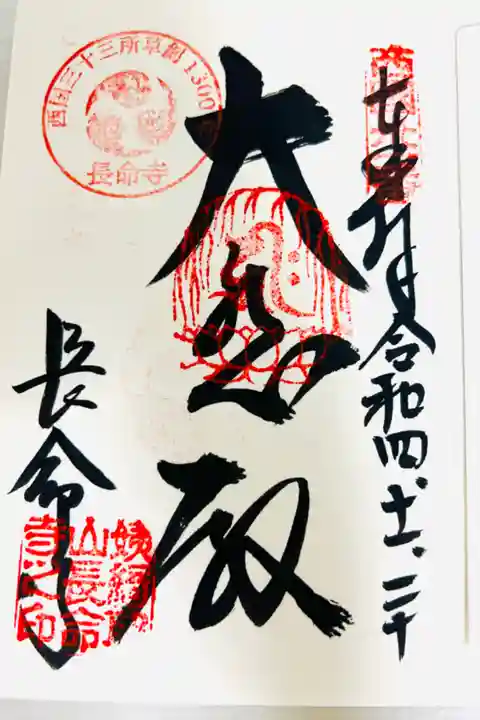 奉拝 令和四、十一、二十
大悲殿
長命寺
西国三十三所草創1300年
長命寺
姨綺耶山長命寺之印